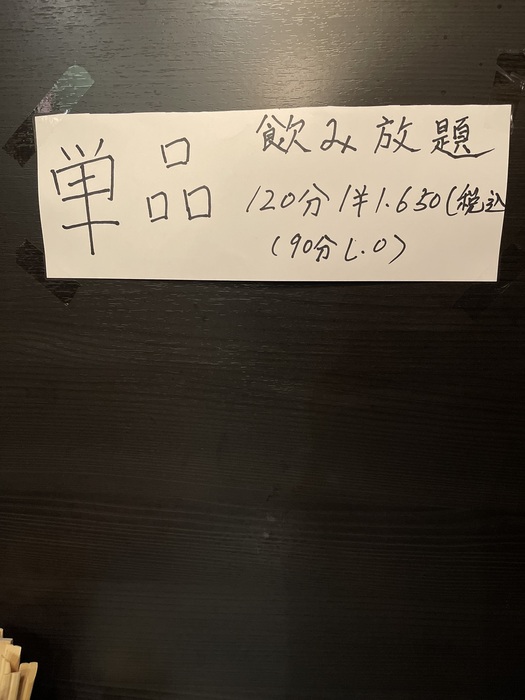 単品
飲み放題
120分 1半1.650(税込
(90分L.O)